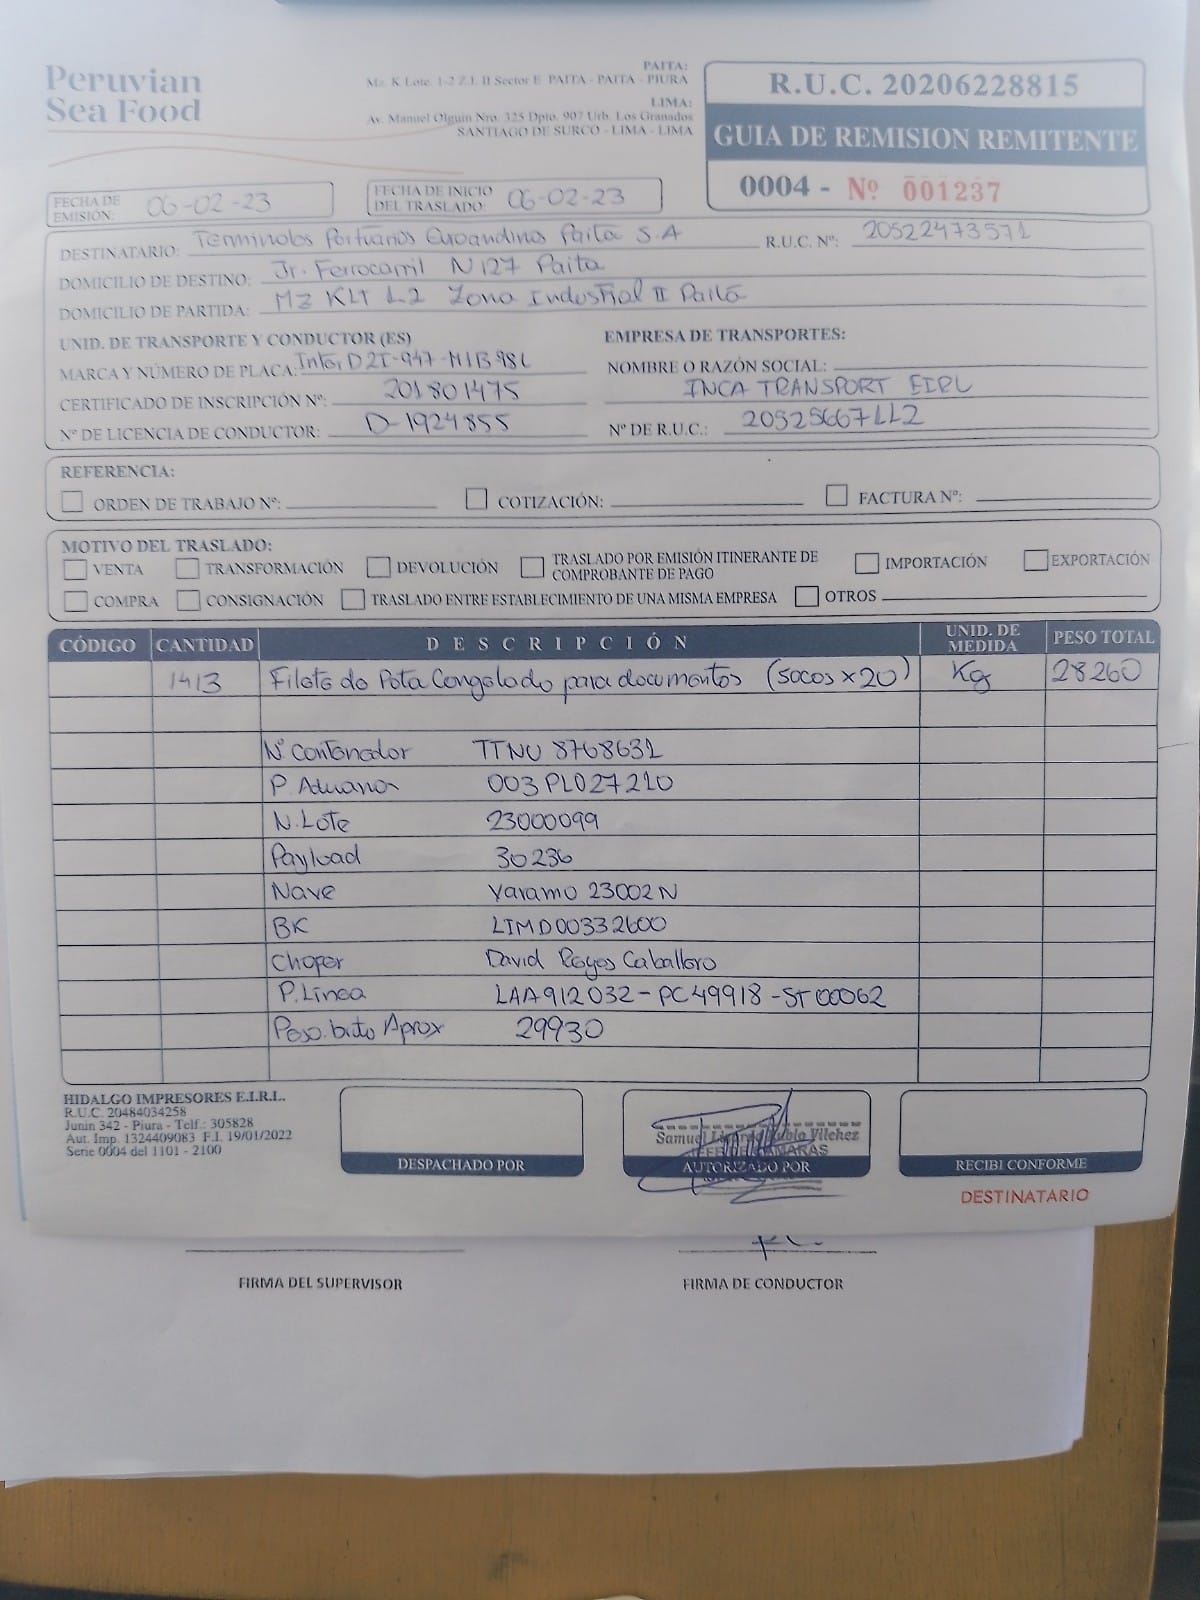 Peruvian
Sea Food
PAITA:
Mz. K Lote. 1-2 Z.I. II Sector E PAITA - PAITA - PIURA
LIMA:
Av. Manuel Olguin Nro. 325 Dpto. 907 Urb. Los Granados
SANTIAGO DE SURCO - LIMA - LIMA
R.U.C. 20206228815
GUIA DE REMISION REMITENTE
0004 - Nº 001237
FECHA DE EMISIÓN: 06-02-23
FECHA DE INICIO DEL TRASLADO: 06-02-23
DESTINATARIO: Terminales Portuarios Euroandinos Paita S.A R.U.C. Nº: 20522473571
DOMICILIO DE DESTINO: Jr. Ferrocarril N 127 Paita
DOMICILIO DE PARTIDA: Mz K LT 1.2 Zona Industrial II Paita
UNID. DE TRANSPORTE Y CONDUCTOR (ES)
MARCA Y NÚMERO DE PLACA: Inter D2I-947-M1B98
CERTIFICADO DE INSCRIPCIÓN Nº: 201801475
Nº DE LICENCIA DE CONDUCTOR: D-1924855
EMPRESA DE TRANSPORTES:
NOMBRE O RAZÓN SOCIAL:
INCA TRANSPORT EIRL
Nº DE R.U.C.: 20525667112
REFERENCIA:
ORDEN DE TRABAJO Nº: COTIZACIÓN: FACTURA Nº:
MOTIVO DEL TRASLADO:
VENTA TRANSFORMACIÓN DEVOLUCIÓN TRASLADO POR EMISIÓN ITINERANTE DE COMPROBANTE DE PAGO IMPORTACIÓN EXPORTACIÓN
COMPRA CONSIGNACIÓN TRASLADO ENTRE ESTABLECIMIENTO DE UNA MISMA EMPRESA OTROS
CÓDIGO CANTIDAD DESCRIPCIÓN UNID. DE MEDIDA PESO TOTAL
1413 Filete de Pota Congelado para documentos (sacos x 20) Kg 28260
Nº Contenedor TTNU 8768631
P. Aduanas 003PL027210
N. Lote 23000099
Payload 30236
Nave Varamo 23002N
BK LIMD00332600
Chofer David Reyes Caballero
P. Linea LAA912032-PC49918-ST00062
Peso. bruto Aprox 29930
HIDALGO IMPRESORES E.I.R.L.
R.U.C. 20484034258
Junin 342 - Piura - Telf.: 305828
Aut. Imp. 1324409083 F.I. 19/01/2022
Serie 0004 del 1101 - 2100
DESPACHADO POR
Samuel Vilchez
AUTORIZADO POR
RECIBI CONFORME
DESTINATARIO
FIRMA DEL SUPERVISOR
FIRMA DE CONDUCTOR